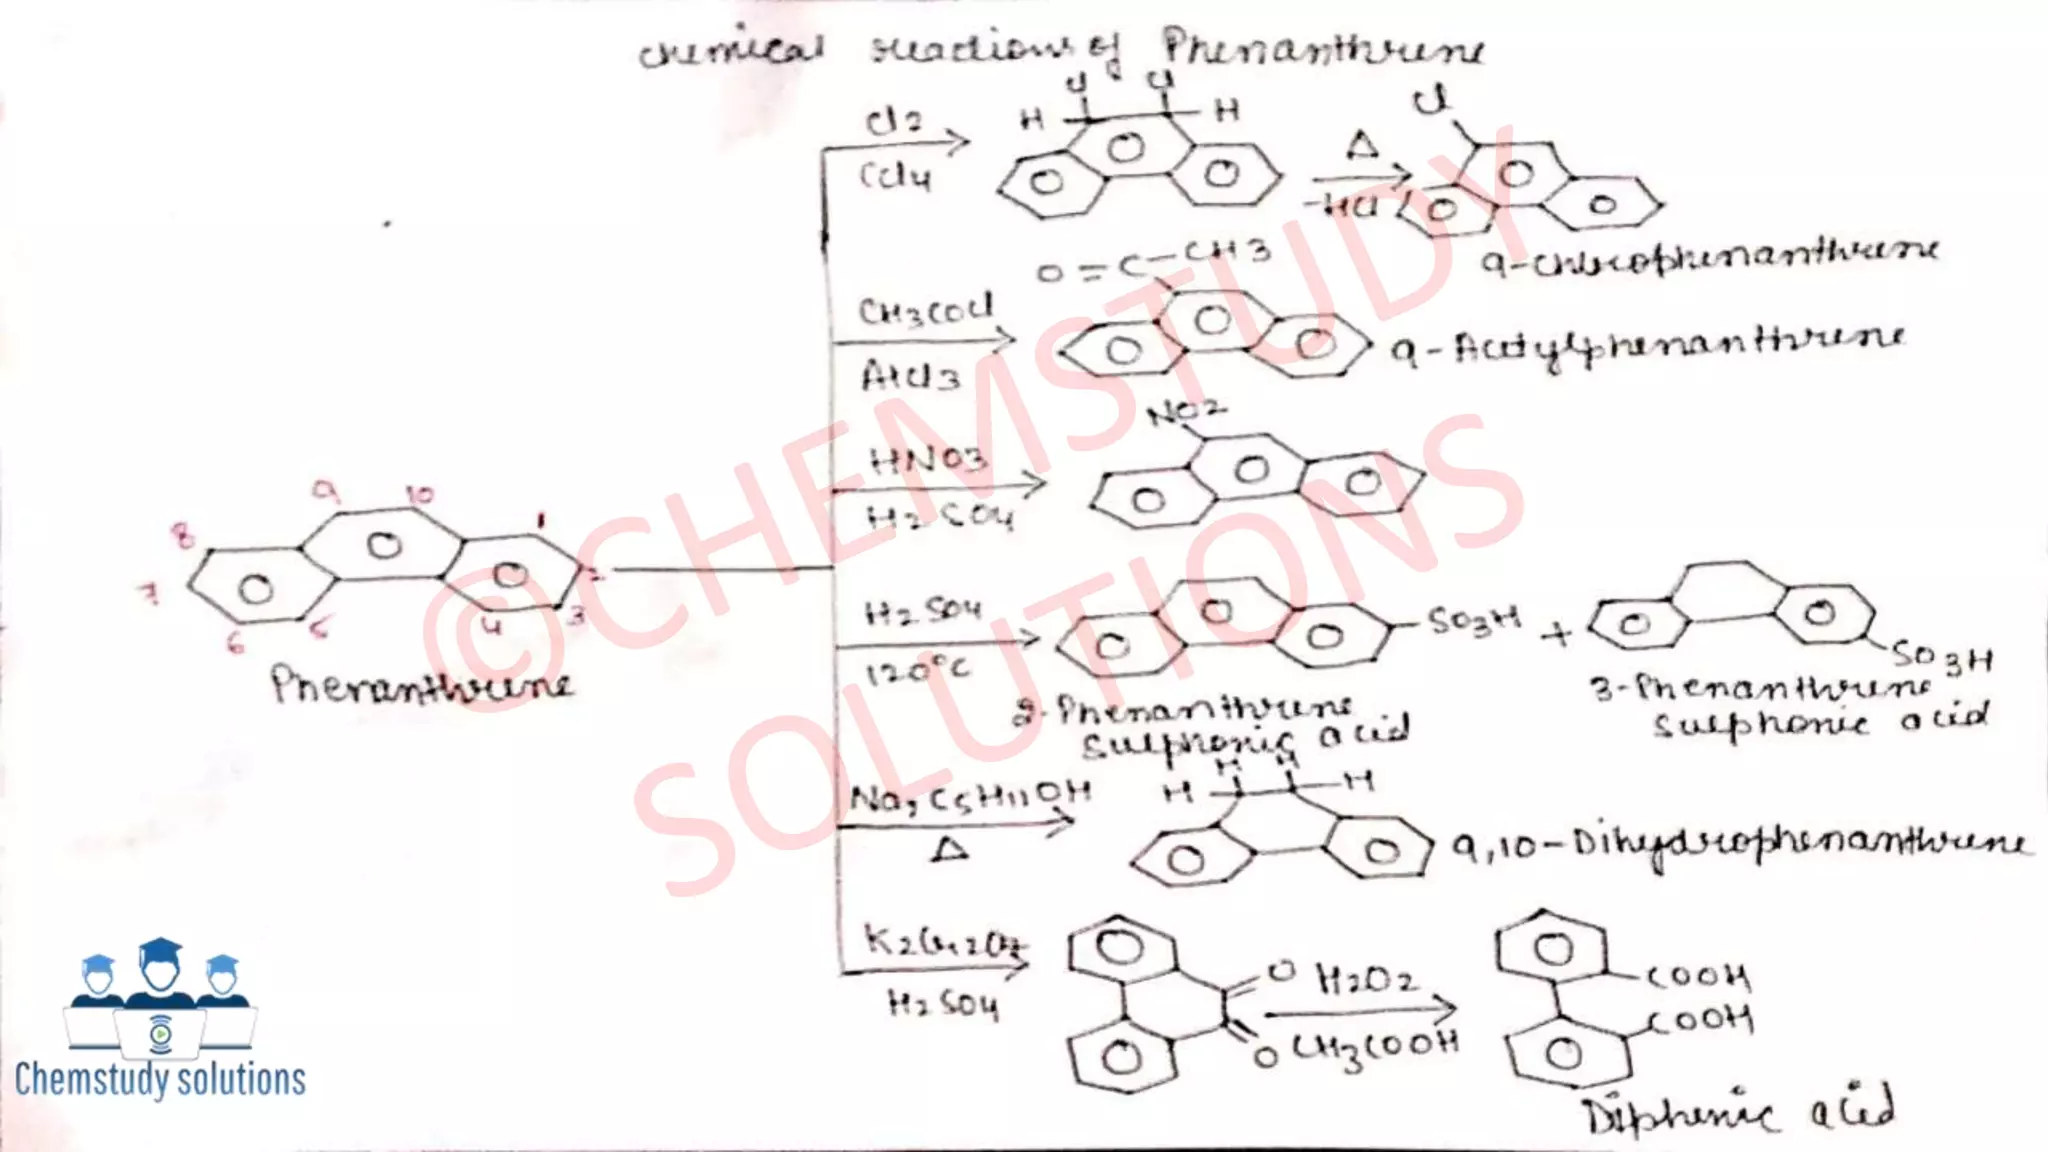 chemical reactions of Phenanthrene
Cl2
CCl4
H Cl Cl H
Δ
-HCl
Cl
9-chlorophenanthrene
CH3COCl
AlCl3
O=C-CH3
9-Acetylphenanthrene
HNO3
H2SO4
NO2
9 10
8 1
7 2
6 5 4 3
Phenanthrene
H2SO4
120°C
SO3H + SO3H
2-Phenanthrene
sulphonic acid
3-Phenanthrene
sulphonic acid
Na, C5H11OH
Δ
H H H H
9,10-Dihydrophenanthrene
K2Cr2O7
H2SO4
O
O
H2O2
CH3COOH
COOH
COOH
Diphenic acid
©CHEMSTUDY
SOLUTIONS
Chemstudy solutions